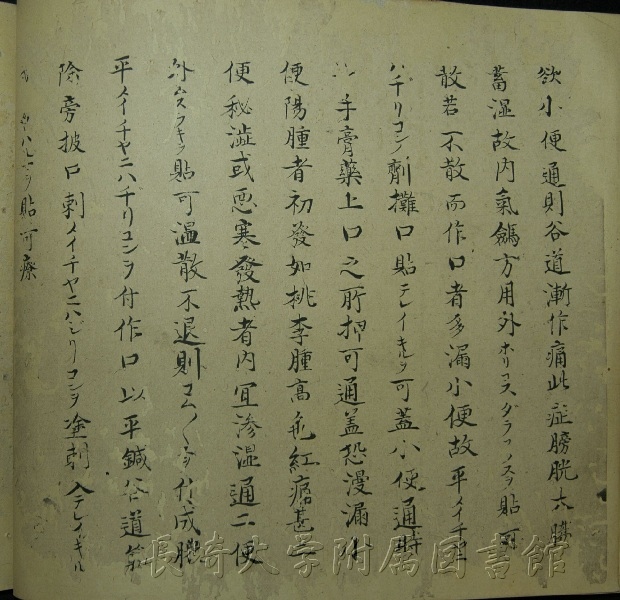 欲小便通則谷道漸作痛此症膀胱大腸
蓄湿故内氣鶴方用外ホリコスダラフノスヲ貼可
散若不散而作口者多漏小便故平メイチヤ
ハチリコン剤攤口貼テレイキルヲ可蓋小便通時
手膏藥上口之所押可通蓋恐漫漏
便陽腫者初發如桃李腫高色紅痛甚
便秘澁或悪寒發熱者内宜滲湿通二便
外ムスラキヲ貼可温散不退則 成膿
平メイチヤニハチリコンヲ付作口以平鍼谷道
除旁披口剌メイチヤニハシリコンヲ塗朝 テレイキル
ヲ貼可療
長崎大学附属図書館